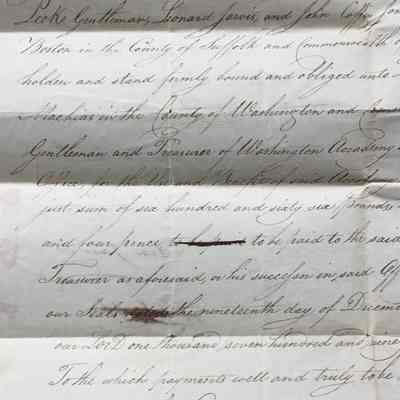 Peck Gentlemen, Leonard Jarvis, and John Coffin Jon
Boston in the County of Suffolk and Commonwealth o
holden and stand firmly bound and obliged unto
Machias in the County of Washington and
Gentleman and Treasurer of Washington Academy
Office, for the Use and Benefit of said Acad
just sum of six hundred and sixty six pounds,
and four pence to be paid to be paid to the said
Treasurer as aforesaid, or his successor in, said Off
our Seals, the nineteenth day of Decem
our Lord one thousand, seven hundred and nine
To the which payments well and truly to be